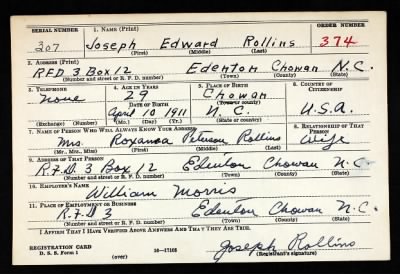 SERIAL NUMBER 1. NAME (Print) ORDER NUMBER
307 Joseph Edward Rollins 374
(First) (Middle) (Last)
2. ADDRESS (Print)
RFD 3 Box 12 Edenton Chowan N.C.
(Number and street or R. F. D. number) (Town) (County) (State)
3. TELEPHONE 4. AGE IN YEARS 5. PLACE OF BIRTH 6. COUNTRY OF CITIZENSHIP
None 29 Chowan
DATE OF BIRTH (Town or county)
April 10 1911 N. C. U.S.A.
(Exchange) (Number) (Mo.) (Day) (Yr.) (State or country)
7. NAME OF PERSON WHO WILL ALWAYS KNOW YOUR ADDRESS 8. RELATIONSHIP OF THAT PERSON
Mrs. Roxanoa Peterson Rollins Wife
(Mr., Mrs., Miss) (First) (Middle) (Last)
9. ADDRESS OF THAT PERSON
R.F.D. 3 Box 12 Edenton Chowan N.C.
(Number and street or R. F. D. number) (Town) (County) (State)
10. EMPLOYER'S NAME
William Morris
11. PLACE OF EMPLOYMENT OR BUSINESS
R.F.D. 3 Edenton Chowan N.C.
(Number and street or R. F. D. number) (Town) (County) (State)
I AFFIRM THAT I HAVE VERIFIED ABOVE ANSWERS AND THAT THEY ARE TRUE.
Joseph Rollins
REGISTRATION CARD
D. S. S. Form 1 (over) 16—17105 (Registrant's signature)